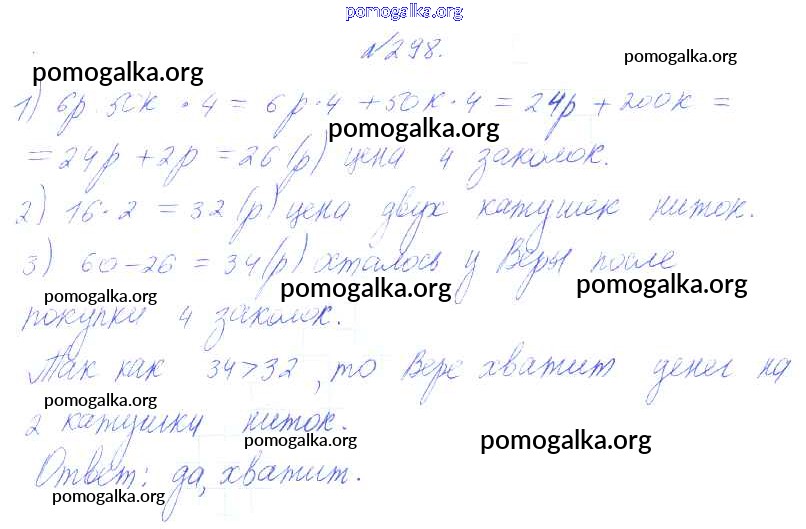 pomogalka.org
№298.
pomogalka.org pomogalka.org
1) 6р.50к · 4 = 6р·4 + 50к·4 = 24р + 200к =
pomogalka.org
= 24р + 2р = 26 (р) цена 4 заколок.
2) 16·2 = 32 (р) цена двух катушек ниток.
3) 60-26 = 34(р) осталось у Веры после
pomogalka.org pomogalka.org pomogalka.org
покупки 4 заколок.
Так как 34>32, то Вере хватит денег на
pomogalka.org
2 катушки ниток.
pomogalka.org pomogalka.org
Ответ: да, хватит.
pomogalka.org